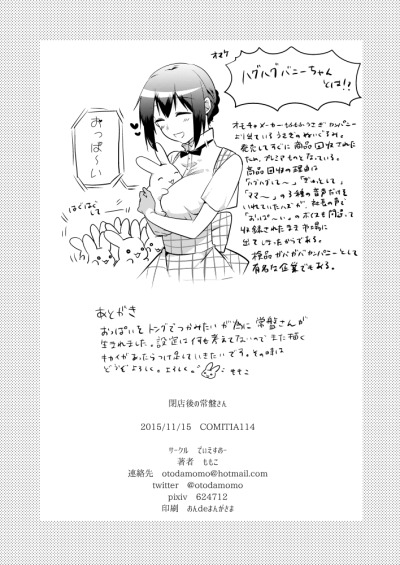 オマケ
ハグハグバニーちゃん
とは!!
オモチャメーカーもふもふうさぎカンパニー
より出ているうさぎのぬいぐるみ。
発売してすぐに商品回収された
ため、プレミアものとなっている。
商品回収の理由は
「ハグハグして〜」「ぎゅっとして」
「ママ〜」の3種の音声だけを
いれていたハズが、社長の声で
「おっぱ〜い」のボイスも間違って
収録されたまま市場に
出てしまったからである。
検品がバガバガカンパニーとして
有名な企業でもある。
おっぱ〜い
はぐはぐ
して〜
あとがき
おっぱいをトングでつかみたいが為に常盤さんが
生まれました。設定は何も考えてないのでまた描く
キカイがあったらつけ足していきたいです。その時は
どうぞよろしく。よろしく。
ももこ
閉店後の常盤さん
2015/11/15 COMITIA114
サークル でぃえすおー
著者 ももこ
連絡先 otodamomo@hotmail.com
twitter @otodamomo
pixiv 624712
印刷 あんdeまんがさま